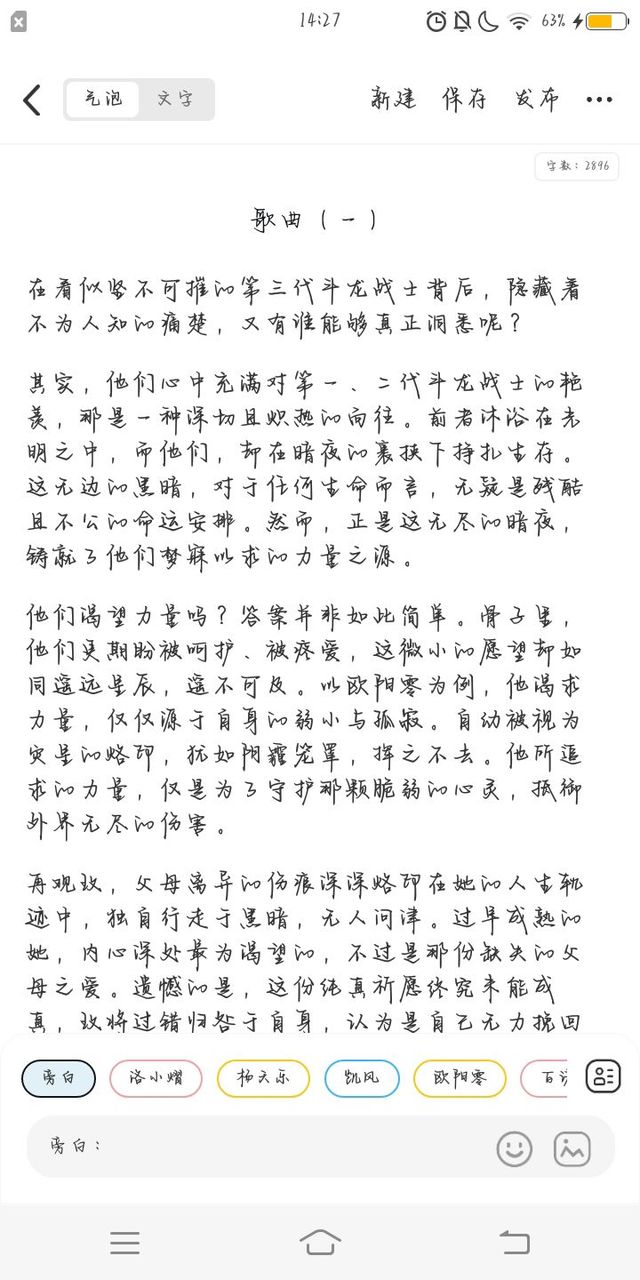 14:27
63%
气泡
文字
新建
保存
发布
字数：2896
歌曲（一）
在看似坚不可摧的第三代斗龙战士背后，隐藏着
不为人知的痛楚，又有谁能够真正洞悉呢？
其实，他们心中充满对第一、二代斗龙战士的艳
羡，那是一种深切且炽热的向往。前者沐浴在光
明之中，而他们，却在暗夜的裹挟下挣扎生存。
这无边的黑暗，对于任何生命而言，无疑是残酷
且不公的命运安排。然而，正是这无尽的暗夜，
铸就了他们梦寐以求的力量之源。
他们渴望力量吗？答案并非如此简单。骨子里，
他们更期盼被呵护、被疼爱，这微小的愿望却如
同遥远星辰，遥不可及。以欧阳零为例，他渴求
力量，仅仅源于自身的弱小与孤寂。自幼被视为
灾星的烙印，犹如阴霾笼罩，挥之不去。他所追
求的力量，仅是为了守护那颗脆弱的心灵，抵御
外界无尽的伤害。
再观玫，父母离异的伤痕深深烙印在她的人生轨
迹中，独自行走于黑暗，无人问津。过早成熟的
她，内心深处最为渴望的，不过是那份缺失的父
母之爱。遗憾的是，这份纯真祈愿终究未能成
真，玫将过错归咎于自身，认为是自己无力挽回
旁白
洛小熠
杨天乐
凯风
欧阳零
百诺
旁白：